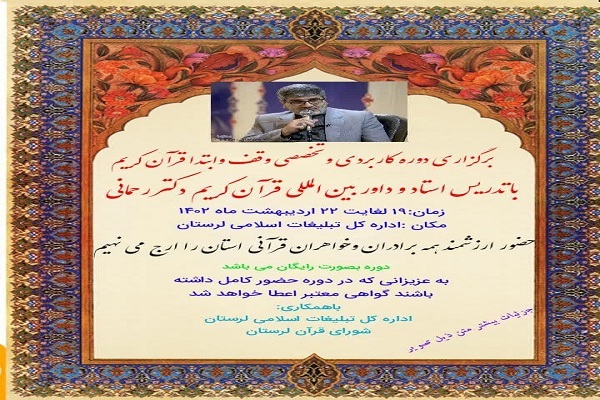 برگزاری دوره کاربردی و تخصصی وقف و ابتدا قرآن کریم
با تدریس استاد و داور بین المللی قرآن کریم دکتر رحمانی
زمان:۱۹ لغایت ۲۲ اردیبهشت ماه ۱۴۰۲
مکان :اداره کل تبلیغات اسلامی لرستان
حضور ارزشمند همه برادران و خواهران قرآنی استان را ارج می نهیم
دوره بصورت رایگان می باشد
به عزیزانی که در دوره حضور کامل داشته
باشند گواهی معتبر اعطا خواهد شد
باهمکاری:
اداره کل تبلیغات اسلامی لرستان
شورای قرآن لرستان
جزئیات بیشتر متن ذیل تصویر